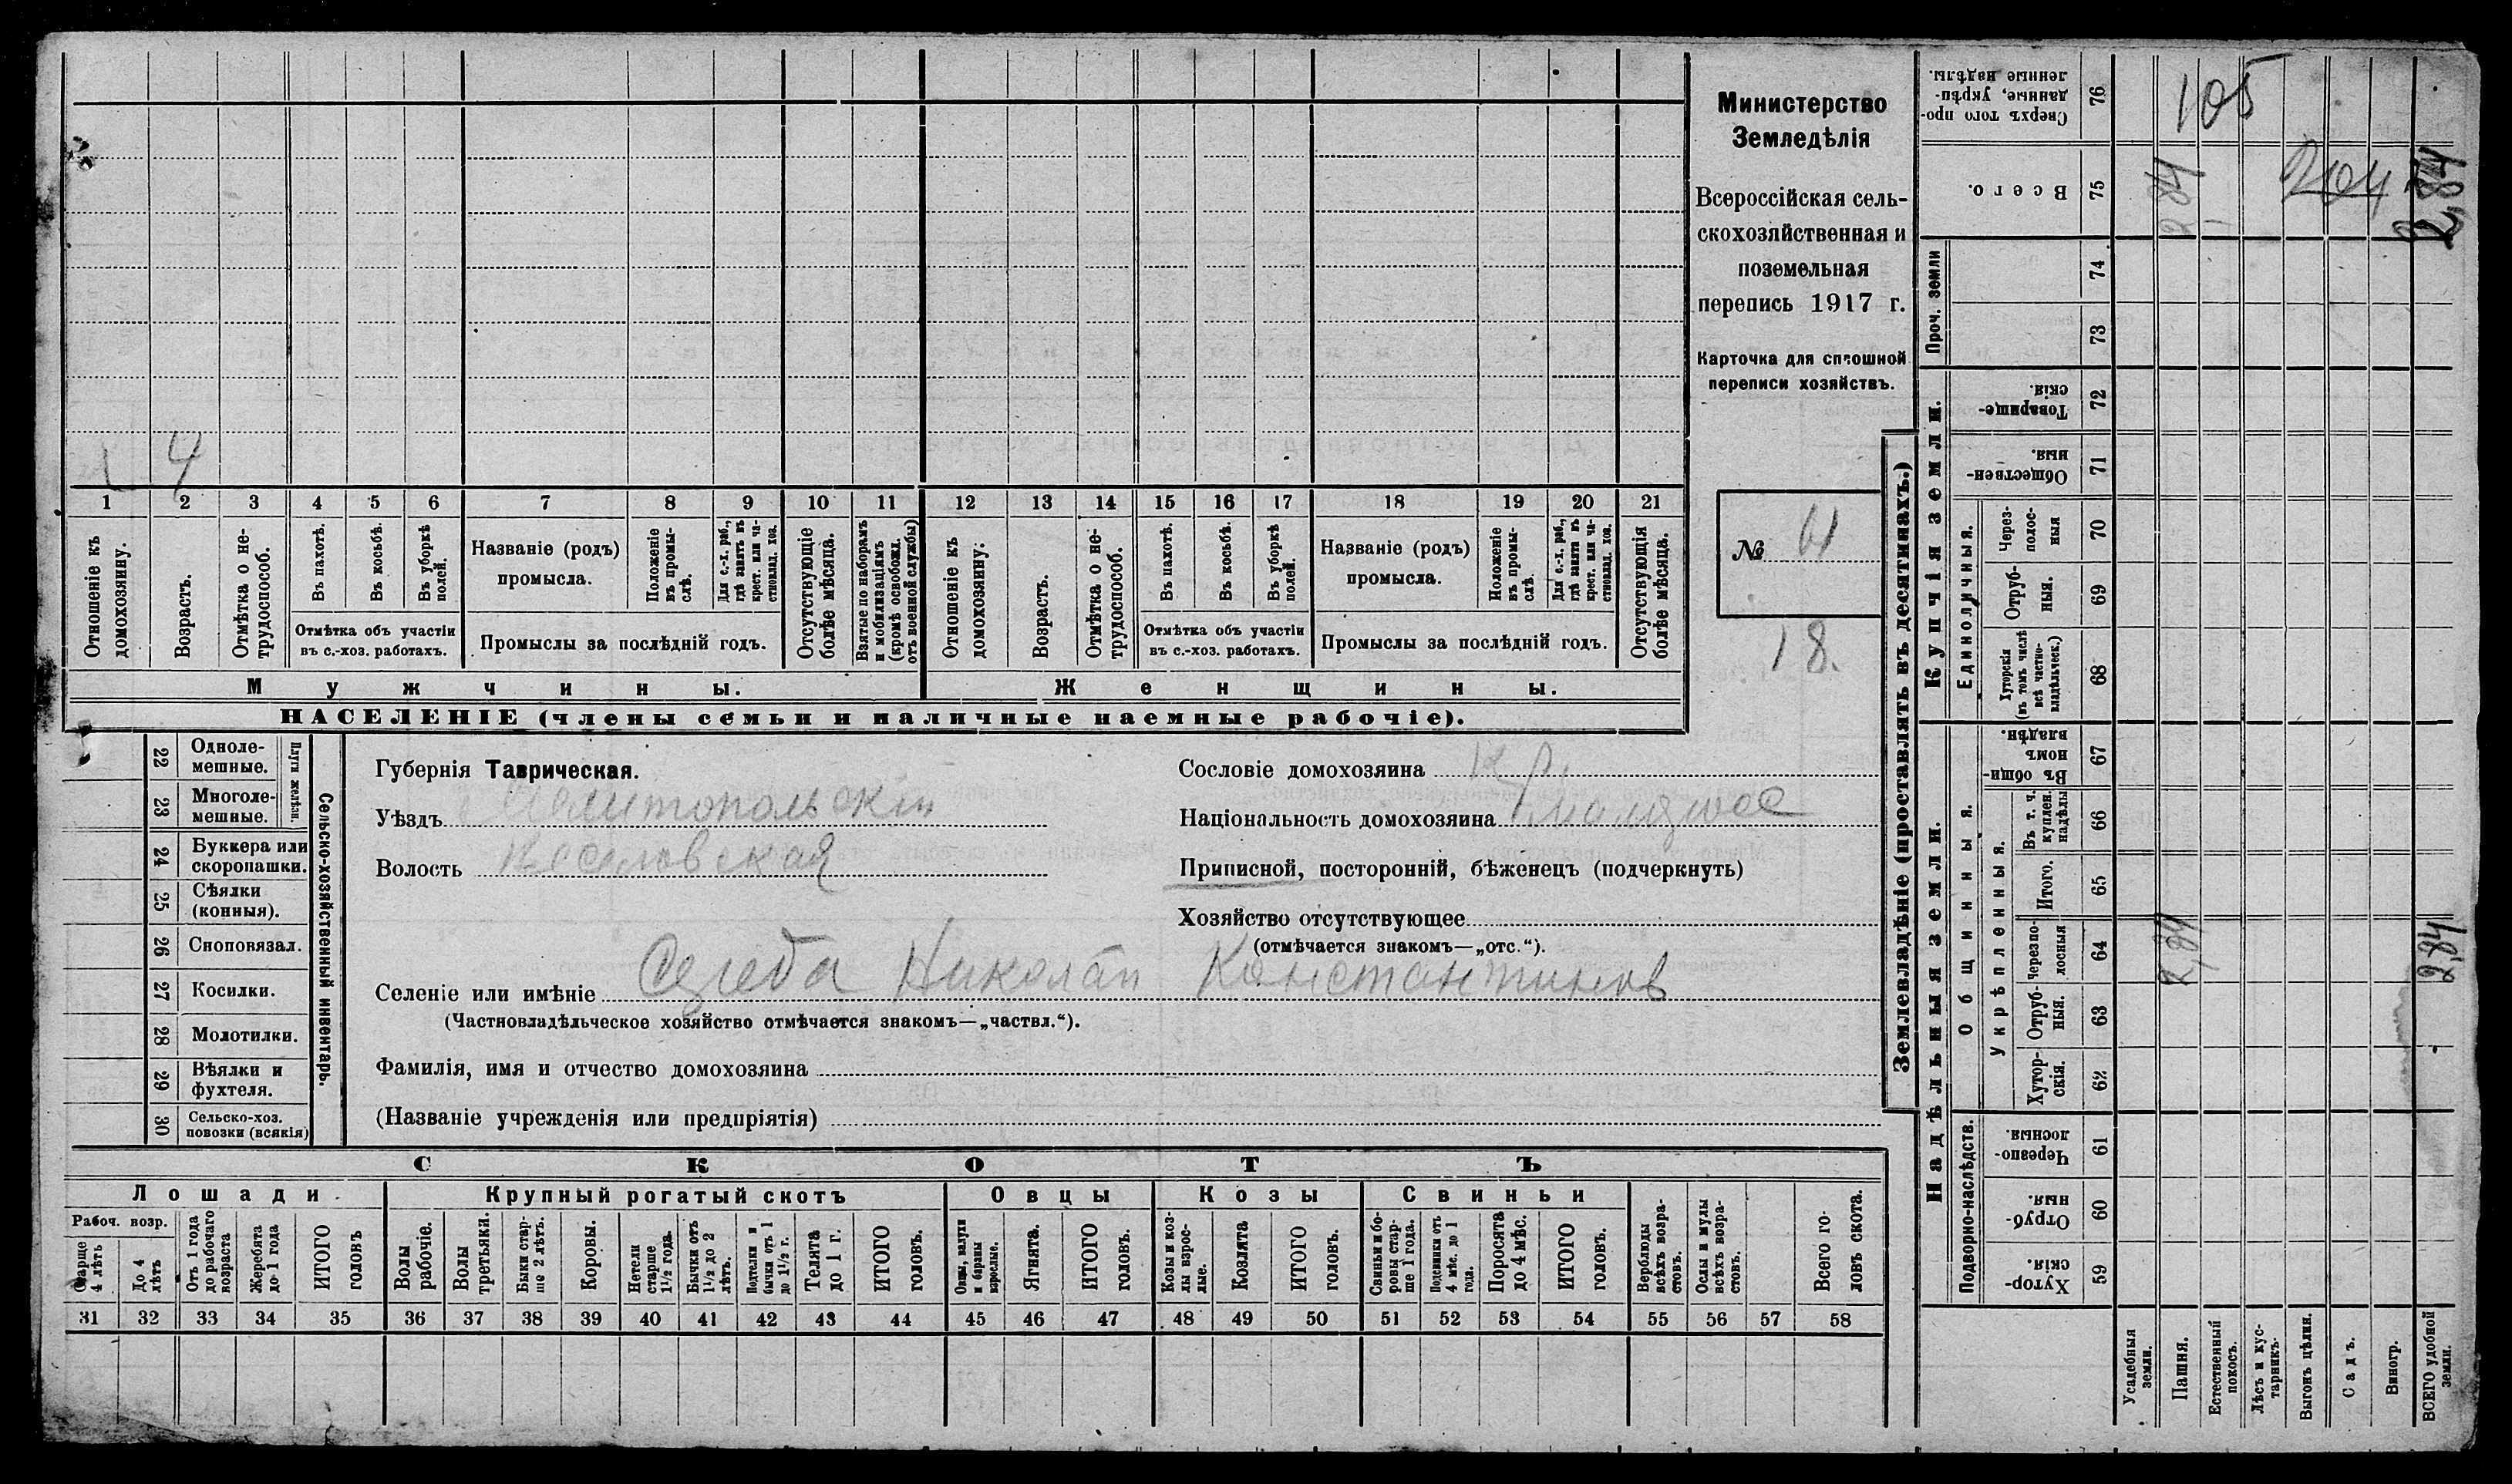 Министерство
Земледѣлія
Всероссійская сель-
скохозяйственная и
поземельная
перепись 1917 г.
Карточка для сплошной
переписи хозяйствъ.
4
1 2 3 4 5 6 7 8 9 10 11 12 13 14 15 16 17 18 19 20 21
Отношеніе къ домохозяину.
Возрастъ.
Отмѣтка о не-трудоспособ.
Въ пахотѣ.
Въ косьбѣ.
Въ уборкѣ полей.
Отмѣтка объ участіи
въ с.-хоз. работахъ.
Названіе (родъ)
промысла.
Положеніе въ промы-слѣ.
Для с.-х. раб., гдѣ занятъ въ крест. или ча-стновлад. хоз.
Промыслы за послѣдній годъ.
Отсутствующіе болѣе мѣсяца.
Взятые по наборамъ и мобилизаціямъ (кромѣ освобожд. отъ военной службы)
Отношеніе къ домохозяину.
Возрастъ.
Отмѣтка о не-трудоспособ.
Въ пахотѣ.
Въ косьбѣ.
Въ уборкѣ полей.
Отмѣтка объ участіи
въ с.-хоз. работахъ.
Названіе (родъ)
промысла.
Положеніе въ промы-слѣ.
Для с.-х. раб., гдѣ занята въ крест. или ча-стновлад. хоз.
Промыслы за послѣдній годъ.
Отсутствующія болѣе мѣсяца.
Мужчины.
Женщины.
НАСЕЛЕНІЕ (члены семьи и наличные наемные рабочіе).
№
18.
22 Одноле-мешные.
23 Многоле-мешные.
Плуги желѣзн.
24 Буккера или скоропашки.
25 Сѣялки (конныя).
26 Сноповязал.
27 Косилки.
28 Молотилки.
29 Вѣялки и фухтеля.
30 Сельско-хоз. повозки (всякія)
Сельско-хозяйственный инвентарь.
Губернія Таврическая.
Уѣздъ Мелитопольскій
Волость Веселовская
Сословіе домохозяина кр.
Національность домохозяина
Приписной, посторонній, бѣженецъ (подчеркнуть)
Хозяйство отсутствующее
(отмѣчается знакомъ—„отс.“).
Селеніе или имѣніе Николай Константинов
(Частновладѣльческое хозяйство отмѣчается знакомъ—„частвл.“).
Фамилія, имя и отчество домохозяина
(Названіе учрежденія или предпріятія)
СКОТЪ
Лошади.
Крупный рогатый скотъ
Овцы
Козы
Свиньи
Рабоч. возр.
Старше 4 лѣтъ
До 4 лѣтъ
Отъ 1 года до рабочаго возраста
Жеребята до 1 года
ИТОГО головъ
Волы рабочіе.
Волы третьяки.
Быки стар-ше 2 лѣтъ.
Коровы.
Нетели старше 1½ года.
Бычки отъ 1½ до 2 лѣтъ.
Подтелки и бычки отъ 1 до 1½ г.
Телята до 1 г.
ИТОГО головъ.
Овцы, валухи и бараны взрослые.
Ягнята.
ИТОГО головъ.
Козы и коз-лы взрос-лые.
Козлята
ИТОГО головъ.
Свиньи и бо-ровы стар-ше 1 года.
Подсвинки отъ 4 мѣс. до 1 года.
Поросята до 4 мѣс.
ИТОГО головъ.
Верблюды всѣхъ возра-стовъ.
Ослы и мулы всѣхъ возра-стовъ.
Всего го-ловъ скота.
31 32 33 34 35 36 37 38 39 40 41 42 43 44 45 46 47 48 49 50 51 52 53 54 55 56 57 58
Землевладѣніе (проставлять въ десятинахъ.)
Надѣльныя земли.
Купчія земли.
Проч. земли
Подворно-наслѣдств.
Общинныя.
Укрѣпленныя.
Единоличныя.
Сверхъ того про-данные, укрѣп-ленные надѣлы. 76 105
Всего. 75 2,84 204 2,84
74
73
Товарище-скія. 72
Обществен-ныя. 71
Через-полос-ныя 70
Отруб-ныя. 69
Хуторскія (въ томъ числѣ всѣ частно-владѣльческ.) 68
Въ общи-номъ владѣн. 67
Въ т. ч. куплен. надѣлы 66
Итого. 65
Черезпо-лосныя 64 2,84 2,84
Отруб-ныя. 63
Хутор-скія. 62
Черезпо-лосныя. 61
Отруб-ныя. 60
Хутор-скія. 59
Усадебныя земли.
Пашня.
Естественный покосъ.
Лѣсъ и кус-тарникъ.
Выгонъ цѣлин.
Садъ.
Виногр.
ВСЕГО удобной земли.